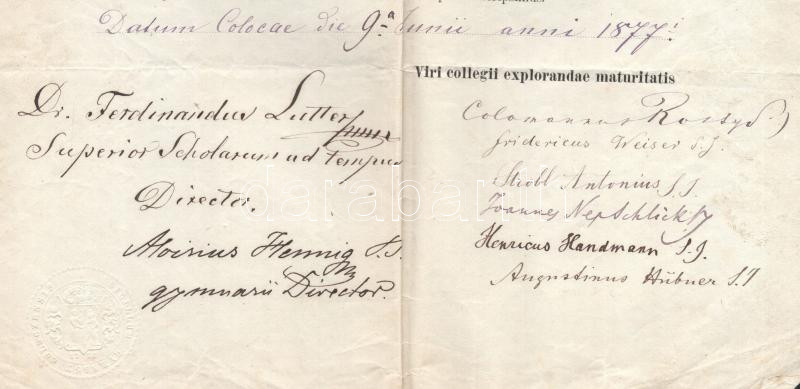 Datum Colocae die 9-a Junii anni 1877i.
Viri collegii explorandae maturitatis
Dr. Ferdinandus Lutter
Superior Scholarum ad tempus
Director.
Aloisius Hennig S.J.
gymnasii Director.
Colomannus Rostyd
Fridericus Weiser S.J.
Ströbl Antonius S.J.
Joannes Nep Schlick SJ
Henricus Handmann S.J.
Augustinus Hübner S.J